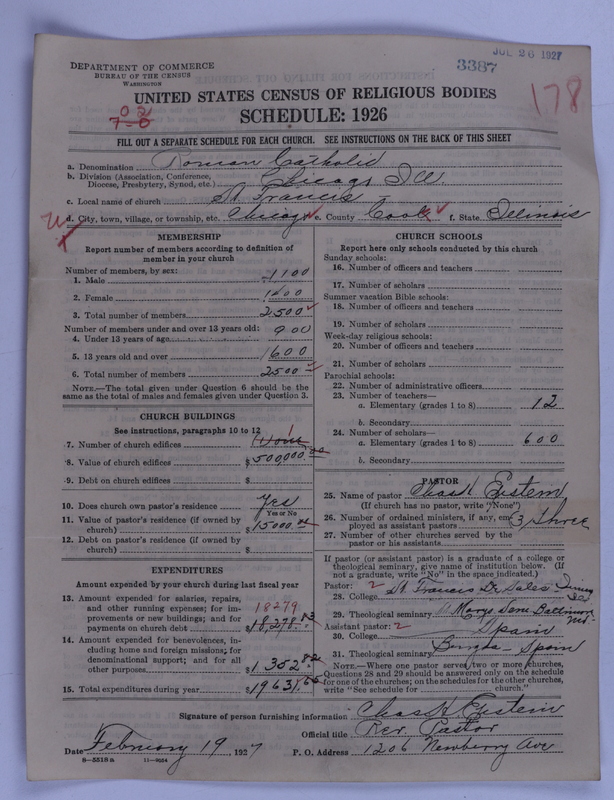 JUL 26 1927
3387
178
DEPARTMENT OF COMMERCE
BUREAU OF THE CENSUS
WASHINGTON
0 2
7-0
UNITED STATES CENSUS OF RELIGIOUS BODIES
SCHEDULE: 1926
FILL OUT A SEPARATE SCHEDULE FOR EACH CHURCH. SEE INSTRUCTIONS ON THE BACK OF THIS SHEET
a. Denomination Roman Catholic
b. Division (Association, Conference, Diocese, Presbytery, Synod, etc.) Chicago Ill.
c. Local name of church St. Francis
d. City, town, village, or township, etc. Chicago e. County Cook f. State Illinois
MEMBERSHIP
Report number of members according to definition of
member in your church
Number of members, by sex:
1. Male 1100
2. Female 1400
3. Total number of members 2500
Number of members under and over 13 years old:
4. Under 13 years of age 900
5. 13 years old and over 1600
6. Total number of members 2500
NOTE.—The total given under Question 6 should be the
same as the total of males and females given under Question 3.
CHURCH BUILDINGS
See instructions, paragraphs 10 to 12
7. Number of church edifices 1
8. Value of church edifices $500,000.00
9. Debt on church edifices $
10. Does church own pastor's residence? Yes
Yes or No
11. Value of pastor's residence (if owned by
church) $15000.00
12. Debt on pastor's residence (if owned by
church) $
EXPENDITURES
Amount expended by your church during last fiscal year
13. Amount expended for salaries, repairs,
and other running expenses; for im-
provements or new buildings; and for 18279
payments on church debt $18,278.83
14. Amount expended for benevolences, in-
cluding home and foreign missions; for
denominational support; and for all
other purposes $1352.82
15. Total expenditures during year $19631.65
CHURCH SCHOOLS
Report here only schools conducted by this church
Sunday schools:
16. Number of officers and teachers
17. Number of scholars
Summer vacation Bible schools:
18. Number of officers and teachers
19. Number of scholars
Week-day religious schools:
20. Number of officers and teachers
21. Number of scholars
Parochial schools:
22. Number of administrative officers
23. Number of teachers—
a. Elementary (grades 1 to 8) 12
b. Secondary
24. Number of scholars—
a. Elementary (grades 1 to 8) 600
b. Secondary
PASTOR
25. Name of pastor Chas H Epstein
(If church has no pastor, write "None")
26. Number of ordained ministers, if any, em-
ployed as assistant pastors (3 three
27. Number of other churches served by the
pastor or his assistants
If pastor (or assistant pastor) is a graduate of a college or
theological seminary, give name of institution below. (If
not a graduate, write "No" in the space indicated.)
Pastor: 2
28. College St. Francis De Sales
29. Theological seminary St Marys Sem. Baltimore Md.
Assistant pastor: 2
30. College Spain
31. Theological seminary Spain
NOTE.—Where one pastor serves two or more churches,
Questions 28 and 29 should be answered only on the schedule
for one of the churches; on the schedules for the other churches,
write "See schedule for church."
Signature of person furnishing information Chas H. Epstein
Official title Rev. Pastor
Date February 19, 1927 P. O. Address 1206 Newberry Ave
8—5518a 11—9324